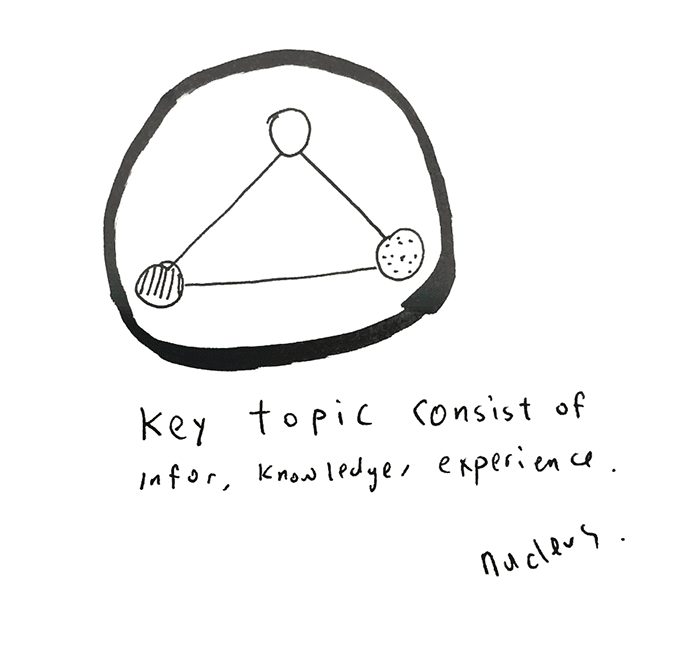 Key topic consist of
infor, knowledge, experience.
nucleus.